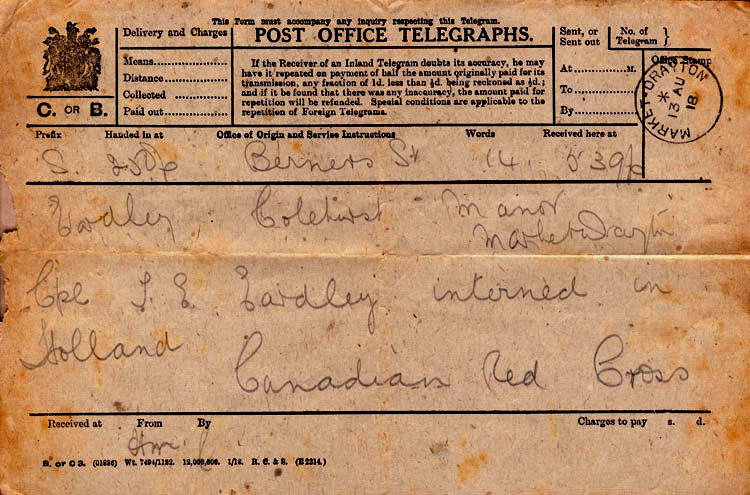 This Form must accompany any inquiry respecting this Telegram.
POST OFFICE TELEGRAPHS.
Delivery and Charges
Means
Distance
Collected
Paid out
C. OR B.
If the Receiver of an Inland Telegram doubts its accuracy, he may
have it repeated on payment of half the amount originally paid for its
transmission, any fraction of 1d. less than ½d. being reckoned as ½d.;
and if it be found that there was any inaccuracy, the amount paid for
repetition will be refunded. Special conditions are applicable to the
repetition of Foreign Telegrams.
Sent, or
Sent out
At M.
To
By
No. of
Telegram }
Office Stamp
MARKET-DRAYTON
13 AU
18
Prefix Handed in at Office of Origin and Service Instructions Words Received here at
S. Berners St 14
Eardley Colehurst Manor
Market Drayton
Cpl J. E. Eardley interned in
Holland
Canadian Red Cross
Received at From By Charges to pay s. d.
B. or C 3. (01836) Wt. 7494/1182. 12,000,000. 1/18. R. C. & S. (E 2214.)